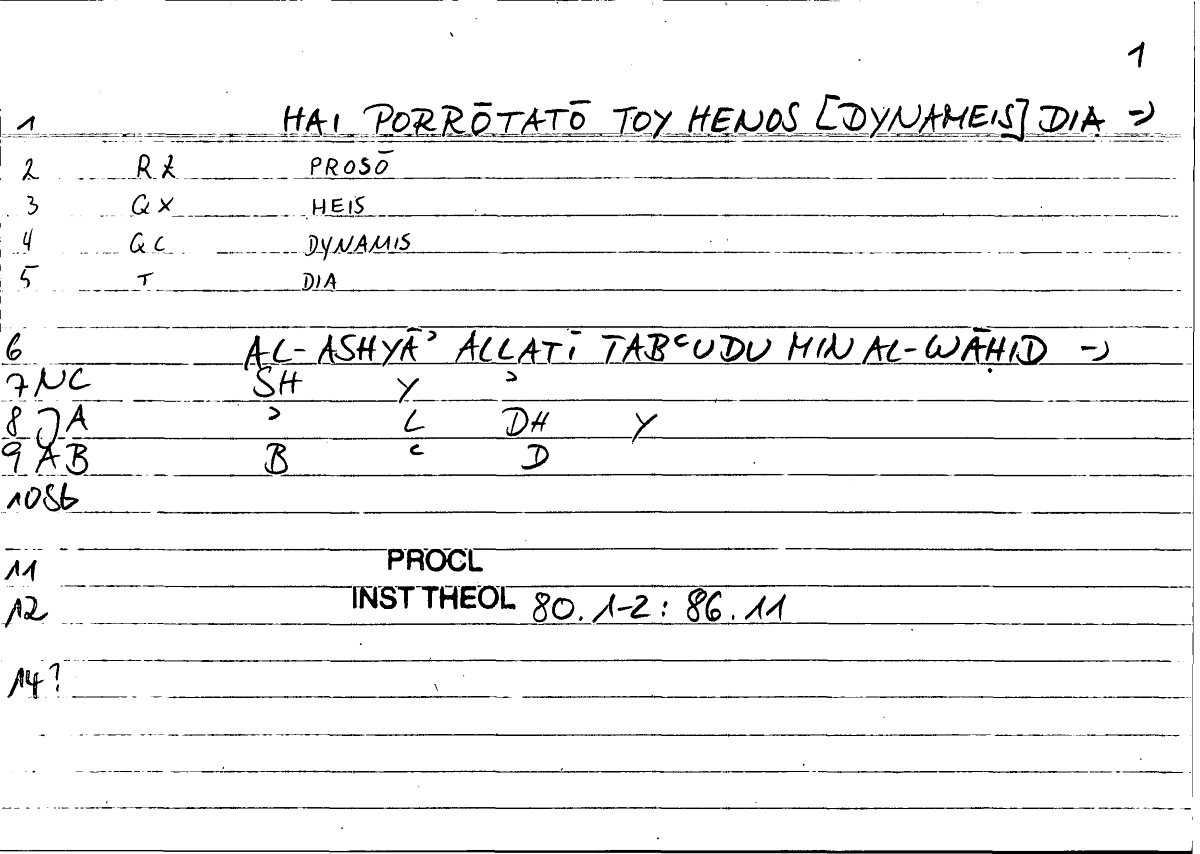 1
1 HAI PORRŌTATŌ TOY HENOS [DYNAMEIS] DIA →
2 RZ PROSŌ
3 QX HEIS
4 QC DYNAMIS
5 T DIA
6 AL-ASHYĀʾ ALLATĪ TABʿUDU MIN AL-WĀḤID →
7 NC SH Y ʾ
8 JA ʾ L DH Y
9 AB B ʿ D
10 Sb
11 PROCL
12 INST THEOL 80.1-2: 86.11
14?